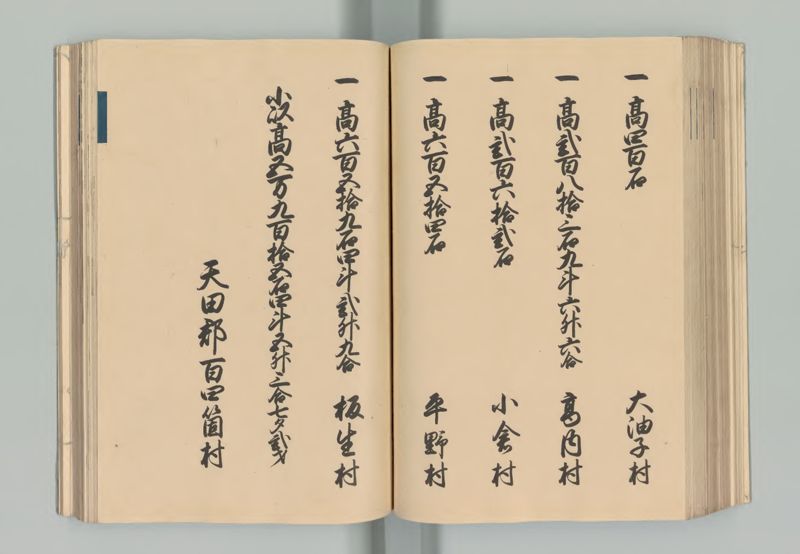 一 高四百石 大油子村
一 高弐百八拾三石九斗六升六合 高内村
一 高弐百六拾弐石 小倉村
一 高六百五拾四石 平野村
一 高六百五拾九石四斗弐升九合 板生村
小以高五万九百拾五石四斗五升三合七夕弐才
天田郡百四箇村